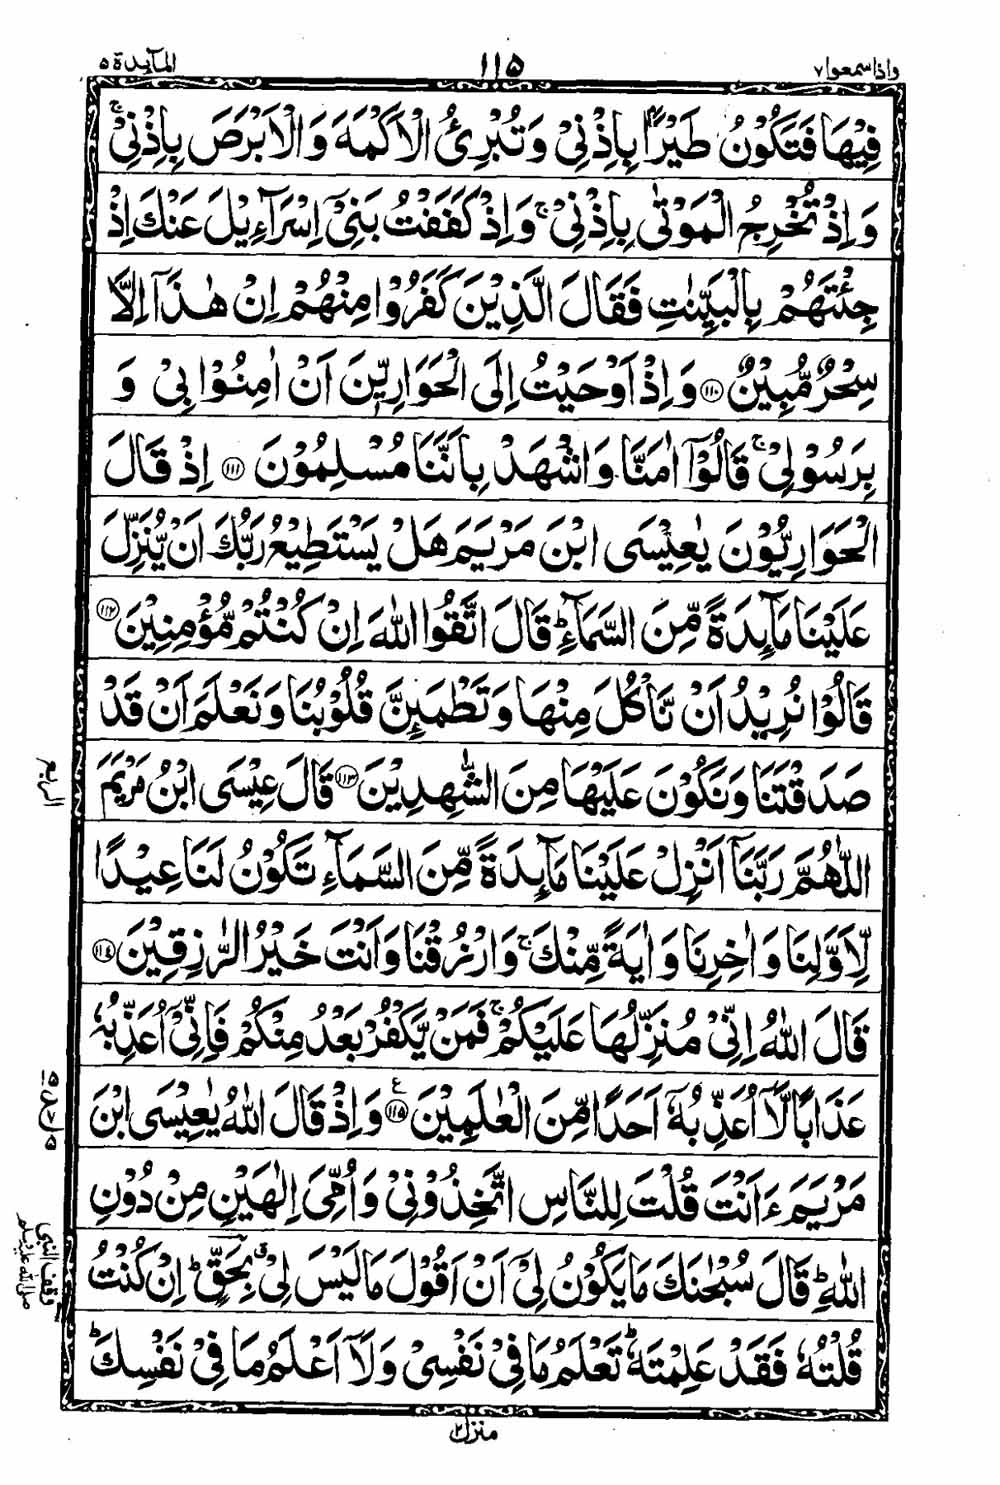 المآىِٕدة ٥
١١٥
واذا سمعوا ٧
فِيْهَا فَتَكُوْنُ طَيْرًۢا بِاِذْنِيْ وَتُبْرِئُ الْاَكْمَهَ وَالْاَبْرَصَ بِاِذْنِيْ ۚ
وَاِذْ تُخْرِجُ الْمَوْتٰى بِاِذْنِيْ ۚ وَاِذْ كَفَفْتُ بَنِيْۤ اِسْرَآءِيْلَ عَنْكَ اِذْ
جِئْتَهُمْ بِالْبَيِّنٰتِ فَقَالَ الَّذِيْنَ كَفَرُوْا مِنْهُمْ اِنْ هٰذَاۤ اِلَّا
سِحْرٌ مُّبِيْنٌ ۝١١٠ وَاِذْ اَوْحَيْتُ اِلَى الْحَوَارِيّٖنَ اَنْ اٰمِنُوْا بِيْ وَ
بِرَسُوْلِيْ ۚ قَالُوْۤا اٰمَنَّا وَاشْهَدْ بِاَنَّنَا مُسْلِمُوْنَ ۝١١١ اِذْ قَالَ
الْحَوَارِيُّوْنَ يٰعِيْسَى ابْنَ مَرْيَمَ هَلْ يَسْتَطِيْعُ رَبُّكَ اَنْ يُّنَزِّلَ
عَلَيْنَا مَآىِٕدَةً مِّنَ السَّمَآءِ ؕ قَالَ اتَّقُوا اللّٰهَ اِنْ كُنْتُمْ مُّؤْمِنِيْنَ ۝١١٢
قَالُوْا نُرِيْدُ اَنْ نَّاْكُلَ مِنْهَا وَتَطْمَىِٕنَّ قُلُوْبُنَا وَنَعْلَمَ اَنْ قَدْ
صَدَقْتَنَا وَنَكُوْنَ عَلَيْهَا مِنَ الشّٰهِدِيْنَ ۝١١٣ قَالَ عِيْسَى ابْنُ مَرْيَمَ
الربع
اللّٰهُمَّ رَبَّنَاۤ اَنْزِلْ عَلَيْنَا مَآىِٕدَةً مِّنَ السَّمَآءِ تَكُوْنُ لَنَا عِيْدًا
لِّاَوَّلِنَا وَاٰخِرِنَا وَاٰيَةً مِّنْكَ ۚ وَارْزُقْنَا وَاَنْتَ خَيْرُ الرّٰزِقِيْنَ ۝١١٤
قَالَ اللّٰهُ اِنِّيْ مُنَزِّلُهَا عَلَيْكُمْ ۚ فَمَنْ يَّكْفُرْ بَعْدُ مِنْكُمْ فَاِنِّيْۤ اُعَذِّبُهٗ
عَذَابًا لَّاۤ اُعَذِّبُهٗۤ اَحَدًا مِّنَ الْعٰلَمِيْنَ ۝١١٥ ع وَاِذْ قَالَ اللّٰهُ يٰعِيْسَى ابْنَ
مَرْيَمَ ءَاَنْتَ قُلْتَ لِلنَّاسِ اتَّخِذُوْنِيْ وَاُمِّيَ اِلٰهَيْنِ مِنْ دُوْنِ
اللّٰهِ ؕ قَالَ سُبْحٰنَكَ مَا يَكُوْنُ لِيْۤ اَنْ اَقُوْلَ مَا لَيْسَ لِيْ ۗ بِحَقٍّ ؕ اِنْ كُنْتُ
وقف النبي
صلى الله عليه وسلم
قُلْتُهٗ فَقَدْ عَلِمْتَهٗ ؕ تَعْلَمُ مَا فِيْ نَفْسِيْ وَلَاۤ اَعْلَمُ مَا فِيْ نَفْسِكَ ؕ
منزل ٢